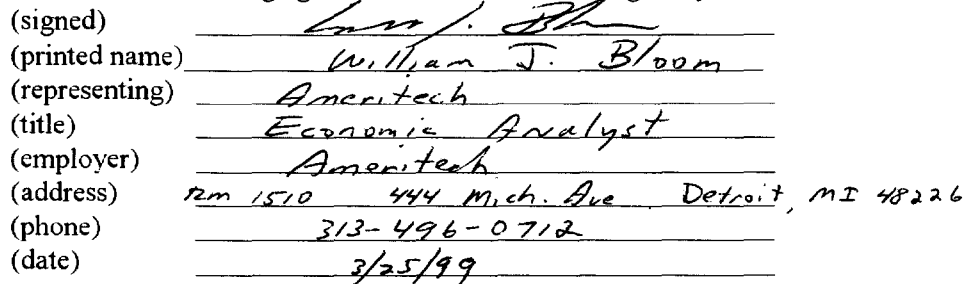 (signed)
(printed name) William J. Bloom
(representing) Ameritech
(title) Economic Analyst
(employer) Ameritech
(address) Rm 1510 444 Mich. Ave Detroit, MI 48226
(phone) 313-496-0712
(date) 3/25/99